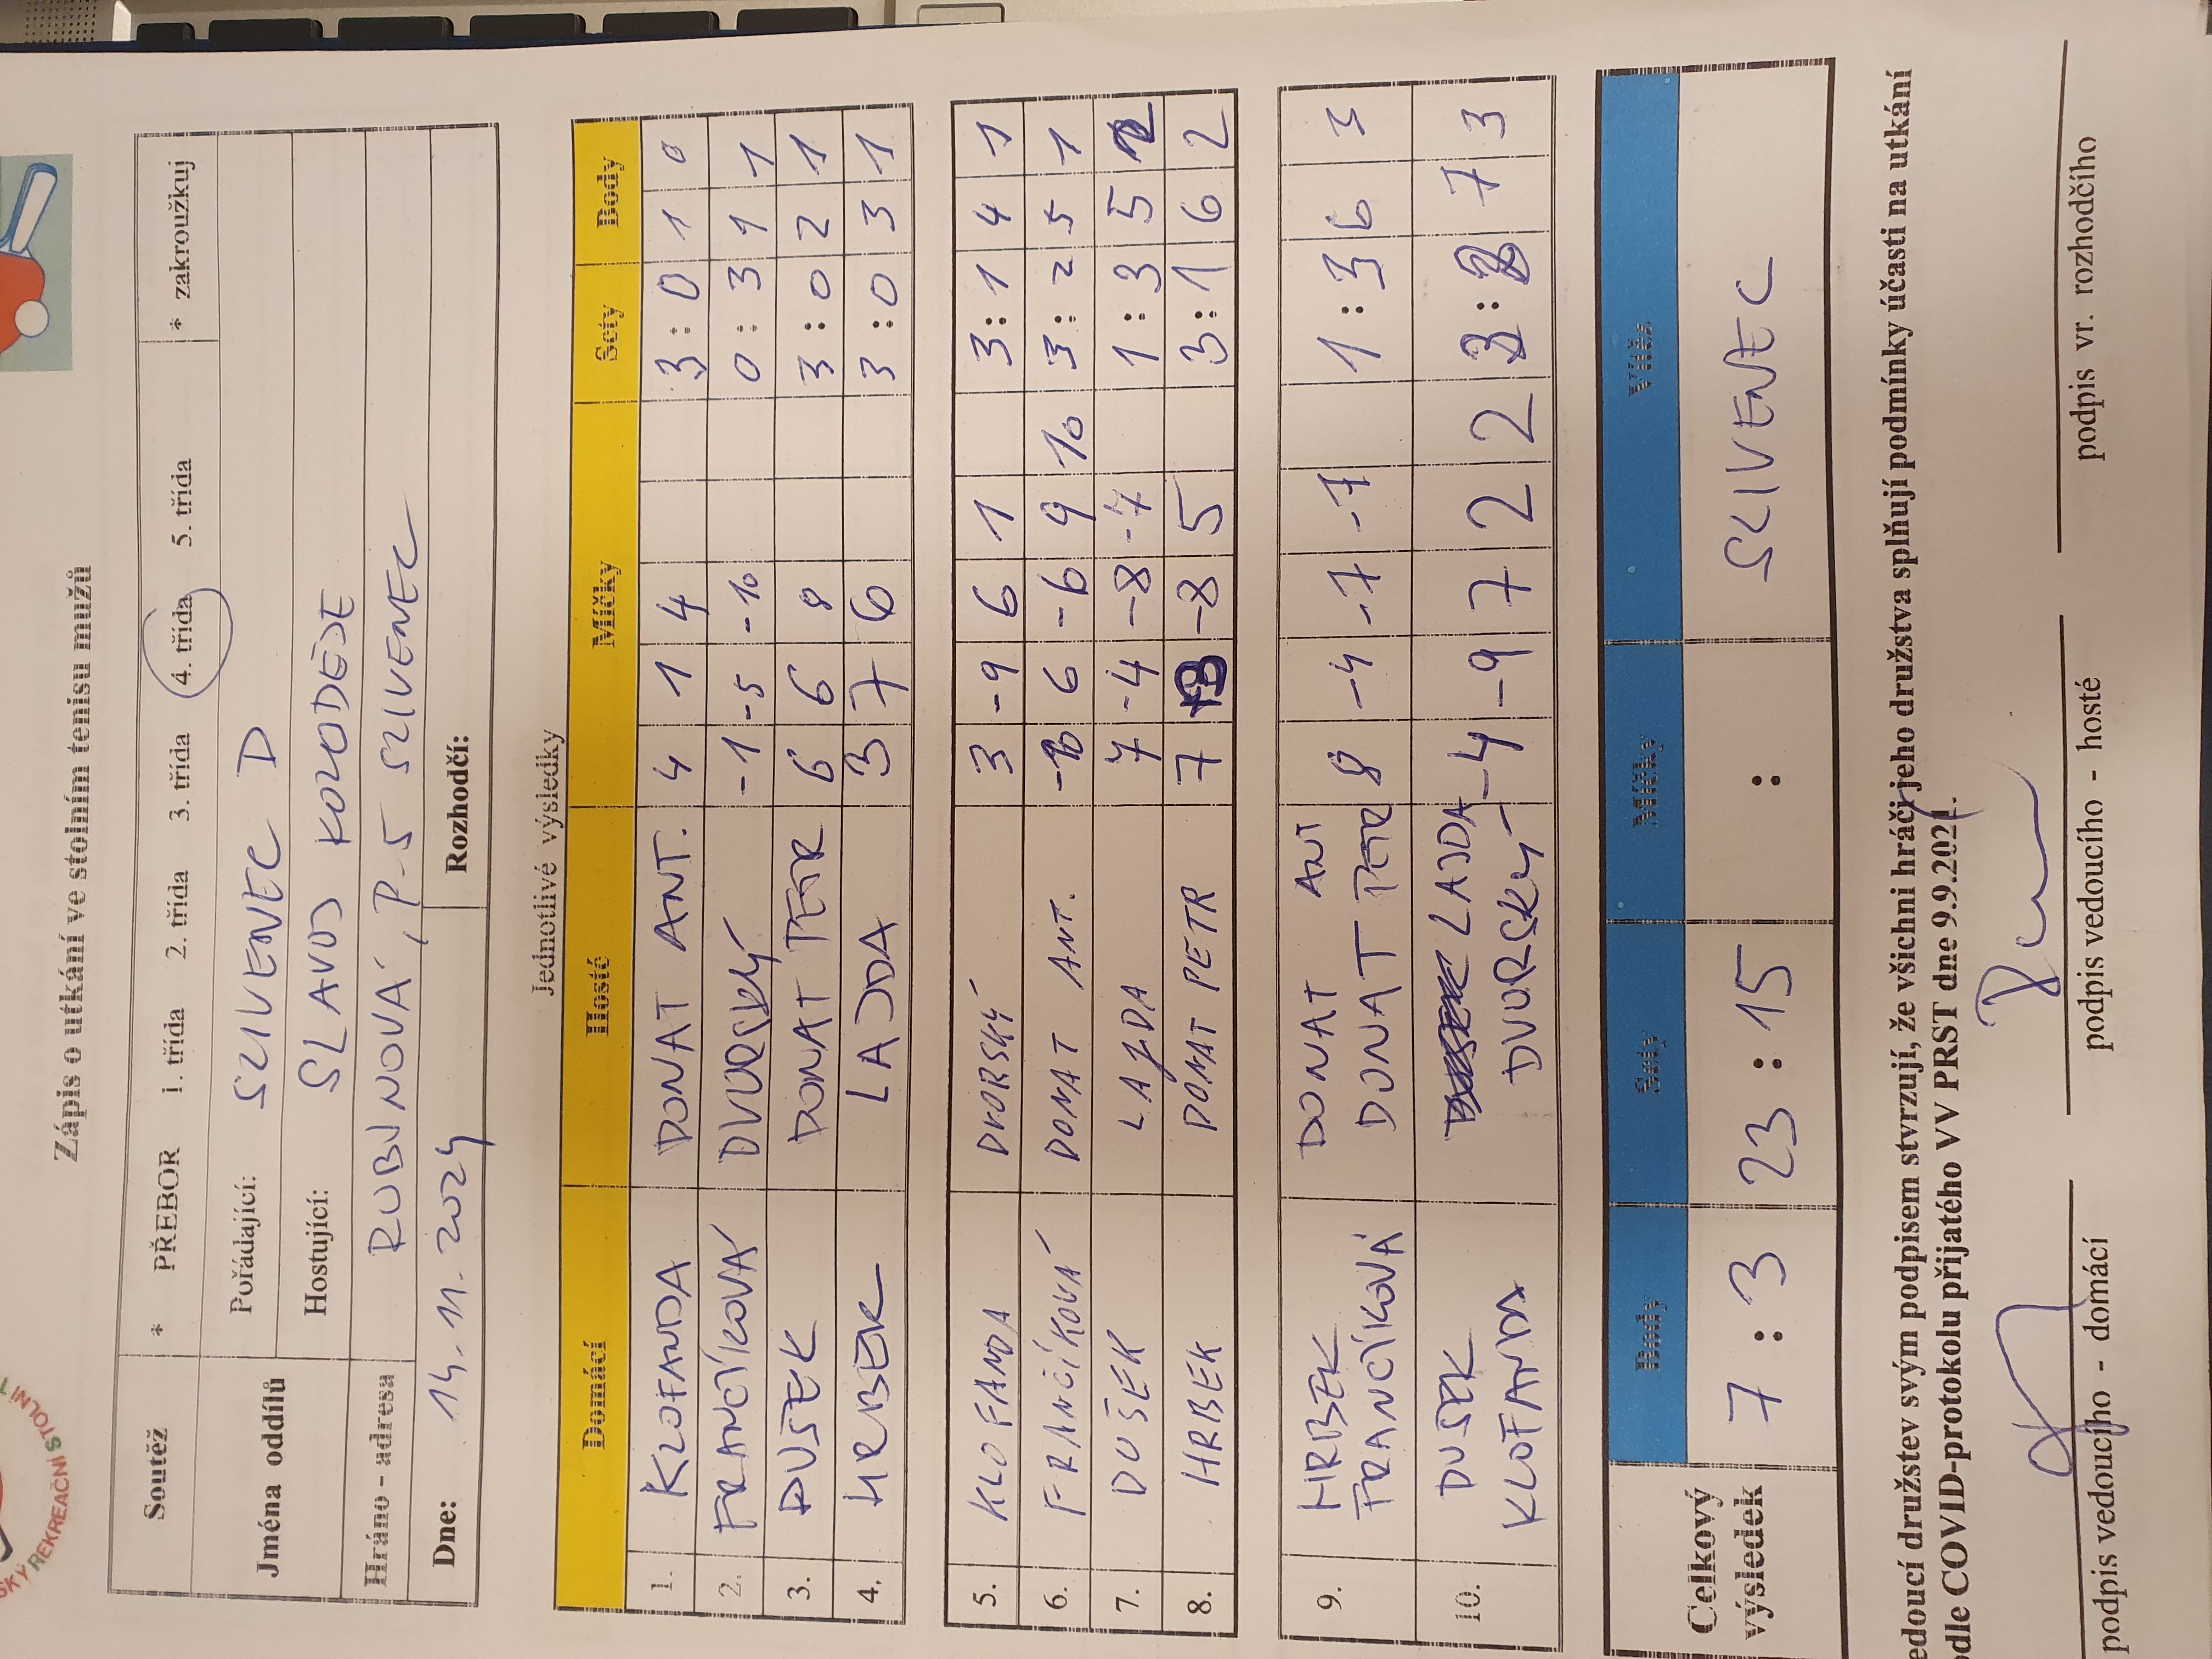 Zápis o utkání ve stolním tenisu mužů
Soutěž * PŘEBOR 1. třída 2. třída 3. třída 4. třída 5. třída * zakroužkuj
Jména oddílů Pořádající: SLIVENEC D
Hostující: SLAVOJ KOLODĚJE
Hráno - adresa RUBLNOVÁ, P-5 SLIVENEC
Dne: 14.11.2024 Rozhodčí:
Jednotlivé výsledky
Domácí Hosté Míčky Sety Body
1. KLOFANDA DONAT ANT. 4 1 4 3:0 1 0
2. FRANČÍKOVÁ DVORSKÝ -1 -5 -10 0:3 1 1
3. DUŠEK DONAT PETR 6 6 8 3:0 2 1
4. HRBEK LAJDA 3 7 6 3:0 3 1
5. KLOFANDA DVORSKÝ 3 -9 6 1 3:1 4 1
6. FRANČÍKOVÁ DONAT ANT. 6 -6 9 10 3:2 5 1
7. DUŠEK LAJDA 7 -4 -8 -7 1:3 5 2
8. HRBEK DONAT PETR 7 -8 5 3:1 6 2
9. HRBEK DONAT ANT 8 -4 -7 -7 1:3 6 3
FRANČÍKOVÁ DONAT PETR
10. DUŠEK LAJDA -4 -9 7 2 2 3:2 7 3
KLOFANDA DVORSKÝ
Body Sety Míčky Vítěz
Celkový výsledek 7:3 23:15 : SLIVENEC
edoucí družstev svým podpisem stvrzují, že všichni hráči jeho družstva splňují podmínky účasti na utkání
odle COVID-protokolu přijatého VV PRST dne 9.9.2021.
podpis vedoucího - domácí podpis vedoucího - hosté podpis vr. rozhodčího